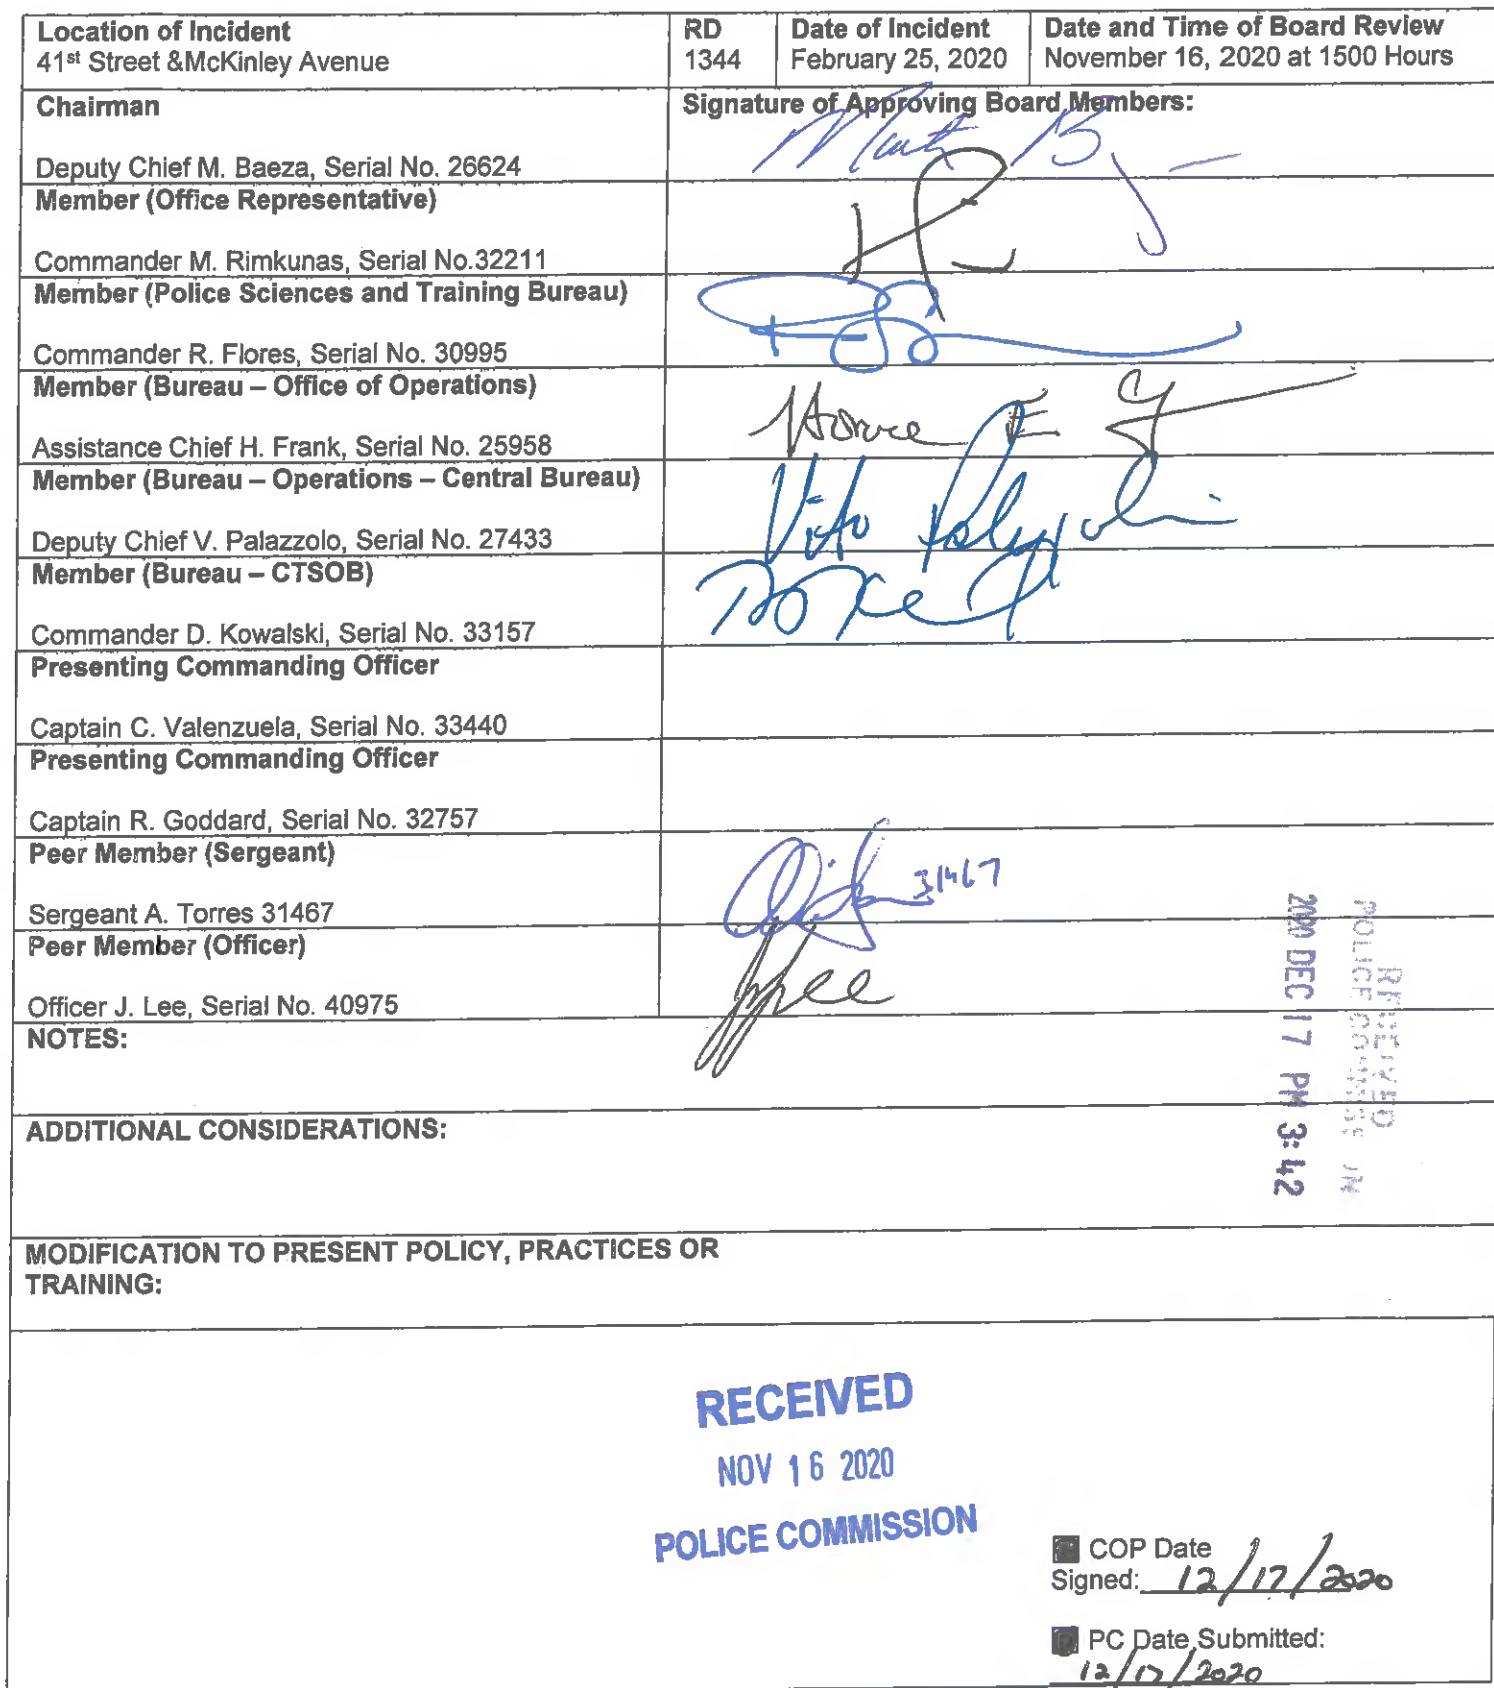 Location of Incident
41st Street &McKinley Avenue
RD
1344
Date of Incident
February 25, 2020
Date and Time of Board Review
November 16, 2020 at 1500 Hours
Chairman
Deputy Chief M. Baeza, Serial No. 26624
Signature of Approving Board Members:
Member (Office Representative)
Commander M. Rimkunas, Serial No.32211
Member (Police Sciences and Training Bureau)
Commander R. Flores, Serial No. 30995
Member (Bureau – Office of Operations)
Assistance Chief H. Frank, Serial No. 25958
Member (Bureau – Operations – Central Bureau)
Deputy Chief V. Palazzolo, Serial No. 27433
Vito
Member (Bureau – CTSOB)
Commander D. Kowalski, Serial No. 33157
Presenting Commanding Officer
Captain C. Valenzuela, Serial No. 33440
Presenting Commanding Officer
Captain R. Goddard, Serial No. 32757
Peer Member (Sergeant)
Sergeant A. Torres 31467
31467
Peer Member (Officer)
Officer J. Lee, Serial No. 40975
Lee
RECEIVED
POLICE
2020 DEC 17 PM 3:42
NOTES:
ADDITIONAL CONSIDERATIONS:
MODIFICATION TO PRESENT POLICY, PRACTICES OR
TRAINING:
RECEIVED
NOV 16 2020
POLICE COMMISSION
COP Date
Signed: 12/17/2020
PC Date Submitted:
12/17/2020